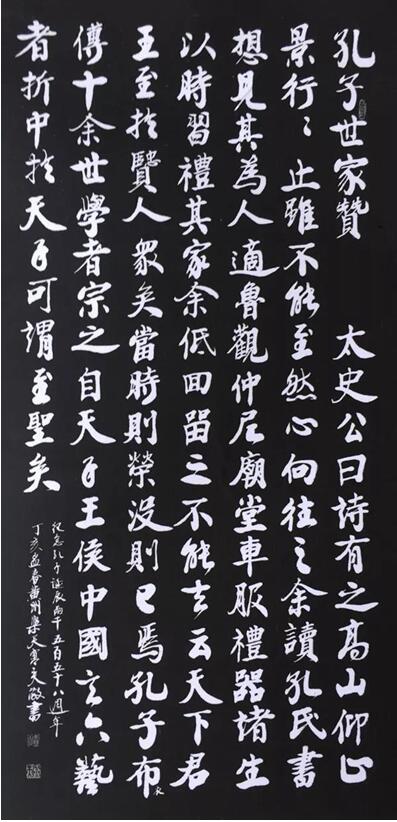 孔子世家贊 太史公曰詩有之高山仰止
景行〻止雖不能至然心向往之余讀孔氏書
想見其為人適魯觀仲尼廟堂車服禮器諸生
以時習禮其家余低回留之不能去云天下君
王至於賢人眾矣當時則榮沒則已焉孔子布衣
傳十余世學者宗之自天子王侯中國言六藝
者折中於天子可謂至聖矣
紀念孔子誕辰兩千五百五十八週年
丁亥孟春黃州樂天文啟書